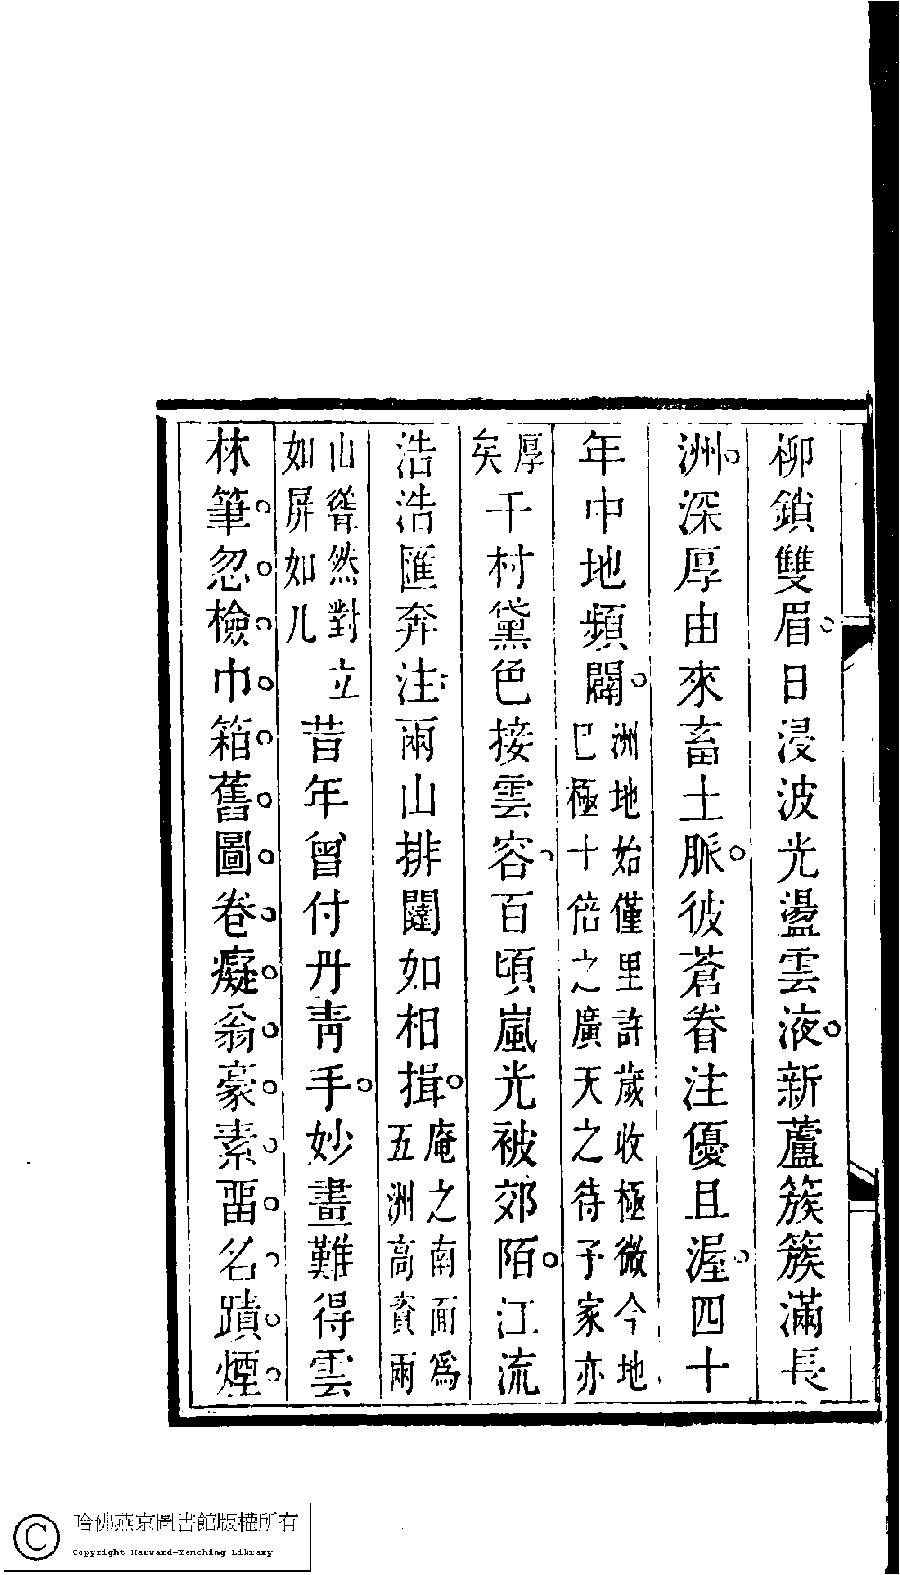 柳鎖雙眉日浸波光盪雲液新蘆簇簇滿長
洲深厚由來畜土脈彼蒼眷注優且渥四十
年中地頻闢洲地始僅里許歲收極微今地
已極十倍之廣天之待予家亦
厚
矣千村黛色接雲容百頃嵐光被郊陌江流
浩浩匯奔注兩山排闥如相揖庵之南面為
五洲高資兩
山聳然對立
如屏如几昔年曾付丹青手妙畫難得雲
林筆忽檢巾箱舊圖卷癡翁豪素畱名蹟煙
哈佛燕京圖書館版權所有
Copyright Harvard-Yenching Library